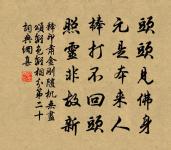 頭頭見佛身
元是本來人
棒打不回頭
照靈非故新
釋印肅金剛隨機無盡
頌離色離相分第二十
詞典網集